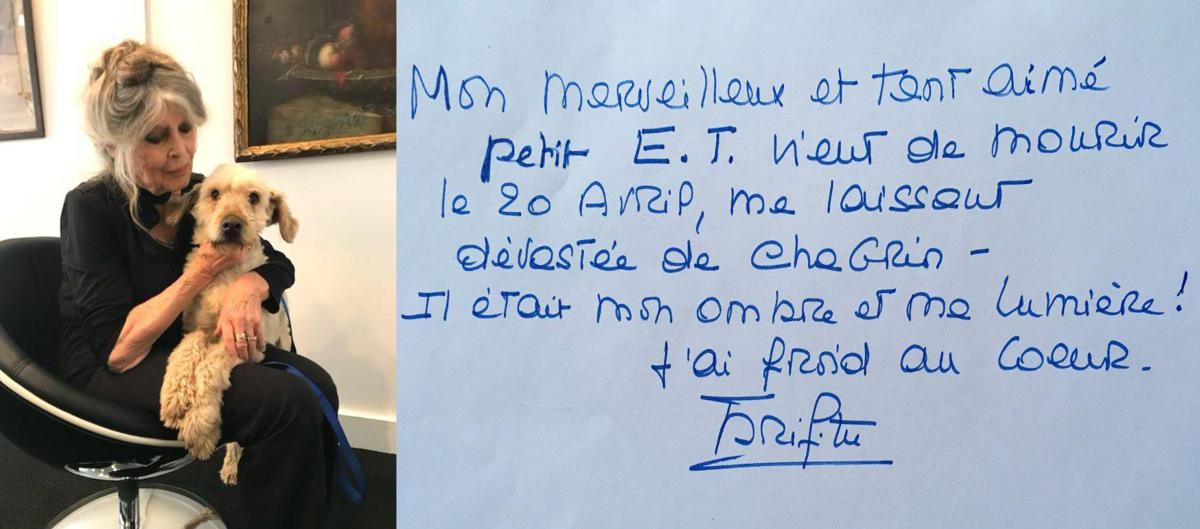 Mon merveilleux et tant aimé
petit E.T. vient de mourir
le 20 Avril, me laissant
dévastée de chagrin -
Il était mon ombre et ma lumière !
J'ai froid au coeur.